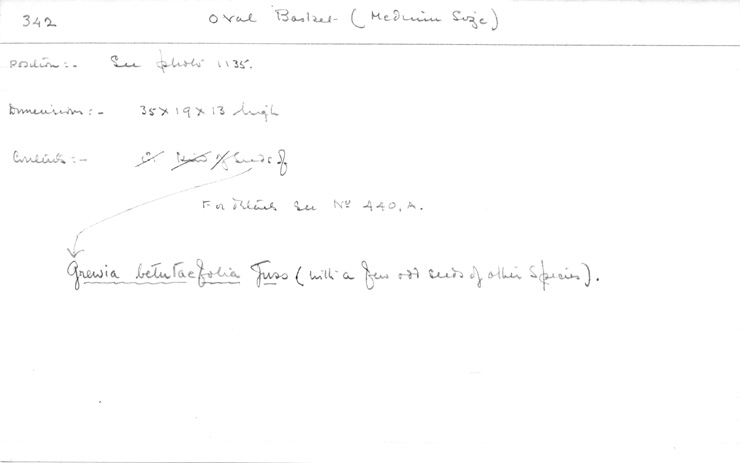 342 Oval Basket (Medium Size)
Position:- See photo 1135.
Dimensions:- 35 x 19 x 13 high
Contents:- A Kind of Seeds of
For details see No 440, A.
Grewia betulaefolia Juss (with a few odd seeds of other Species).